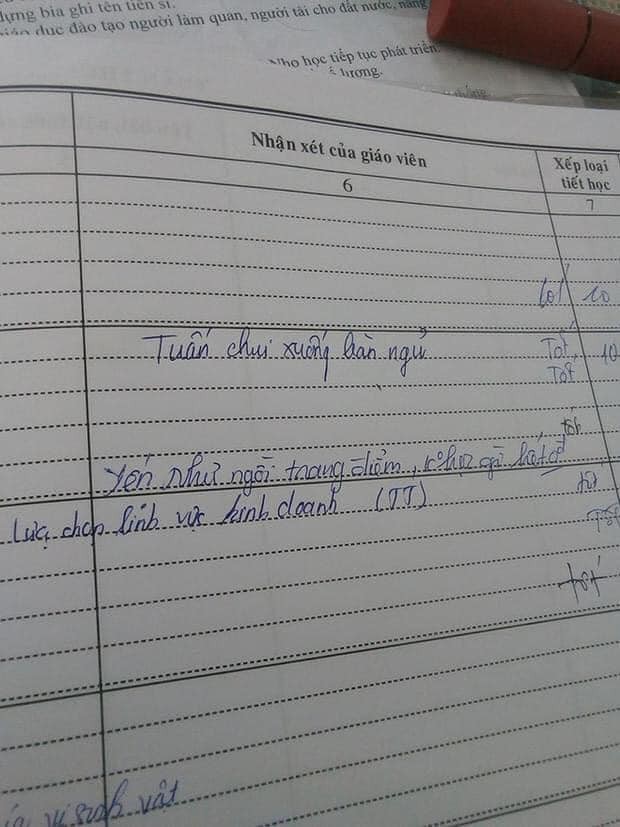 dựng bia ghi tên tiến sĩ.
giáo dục đào tạo người làm quan, người tài cho đất nước, nâng
Nho học tiếp tục phát triển.
Nhận xét của giáo viên
Xếp loại
tiết học
6
7
tốt 10
Tuấn chui xuống bàn ngủ
Tốt 10
Tốt
tốt
Yến Như ngồi trang điểm, k học gì hết
tốt
Lựa chọn lĩnh vực kinh doanh (TT)
Tốt
tốt
vi sinh vật